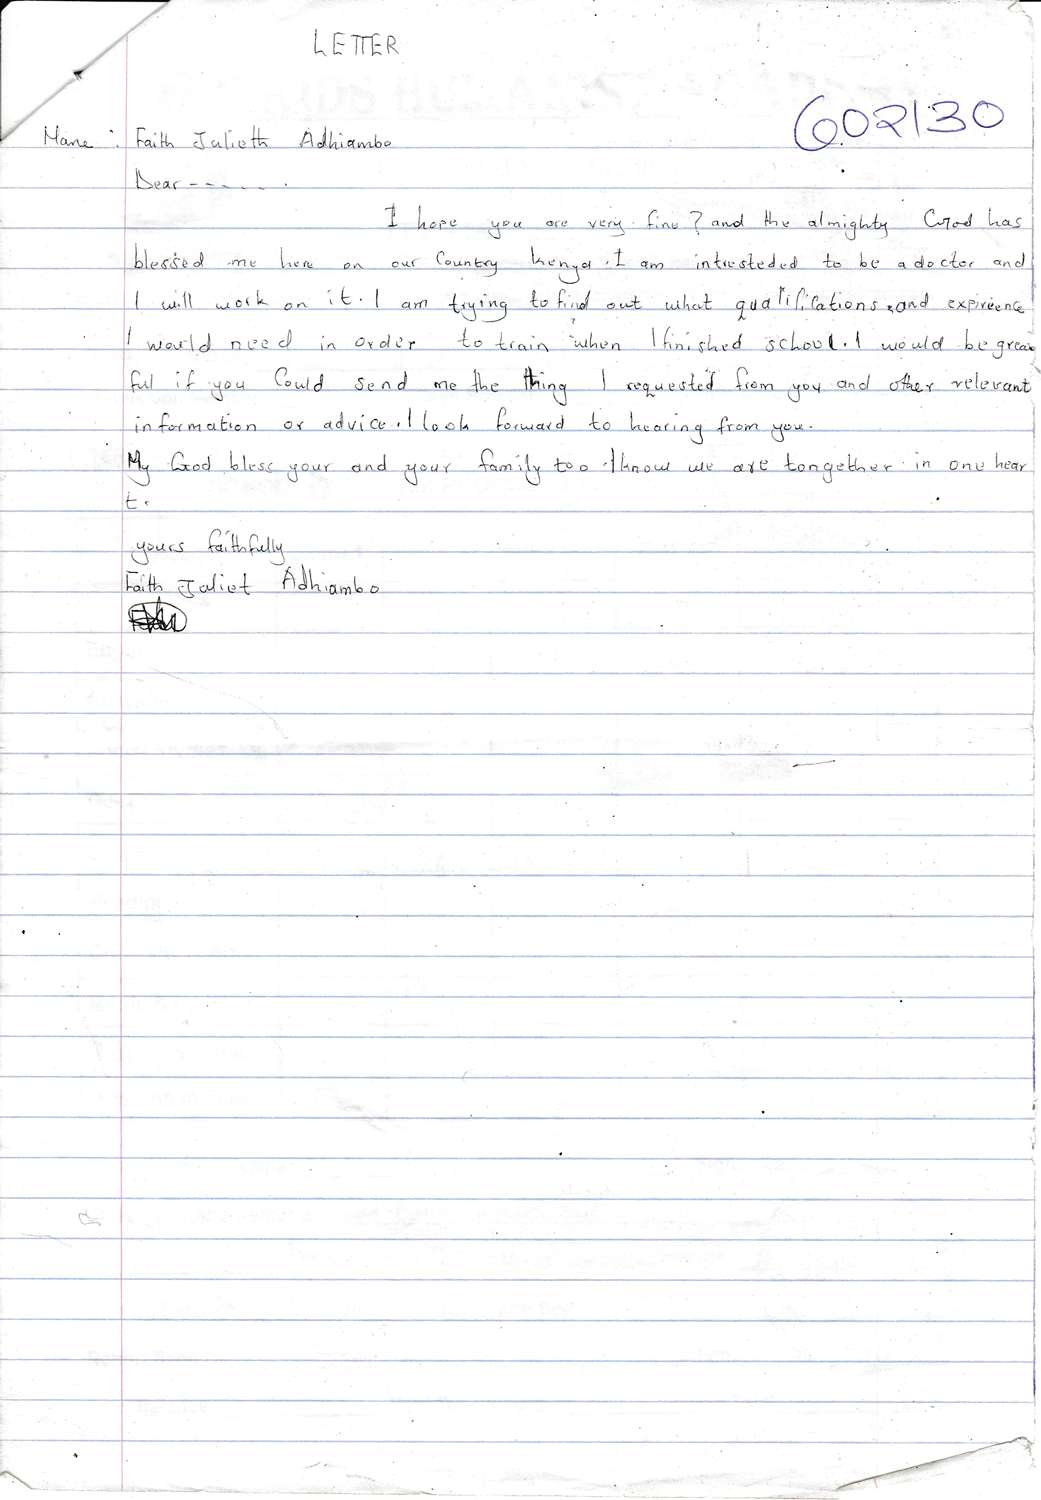 LETTER
602130
Mane : Faith Julieth Adhiambo
Dear - - - - - .
I hope you are very fine? and the almighty God has
blessed me here on our Country kenya. I am intresteded to be a doctor and
I will work on it. I am trying to find out what qualifications, and expireence
I would need in order to train when I finished school. I would be grea
ful if you Could send me the thing I requested from you and other relevant
information or advice. I look forward to hearing from you.
My God bless your and your family too. I know we are tongether in one hear
t.
yours faithfully
Faith Juliet Adhiambo